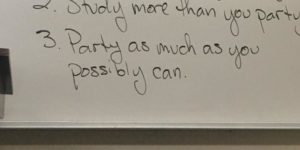 2. Study more than you party
3. Party as much as you
possibly can.